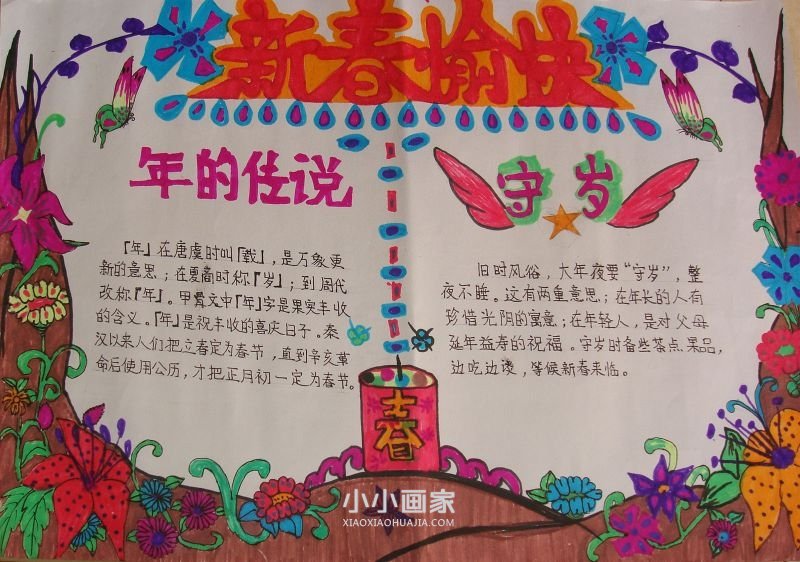 新春愉快
年的传说
『年』在唐虞时叫『载』，是万象更
新的意思；在夏商时称『岁』；到周代
改称『年』。甲骨文中『年』字是果实丰收
的含义。『年』是祝丰收的喜庆日子。秦
汉以来人们把立春定为春节，直到辛亥革
命后使用公历，才把正月初一定为春节。
守岁
旧时风俗，大年夜要“守岁”，整
夜不睡。这有两重意思；在年长的人有
珍惜光阴的寓意；在年轻人，是对父母
延年益寿的祝福。守岁时备些茶点果品，
边吃边谈，等候新春来临。
春
小小画家
XIAOXIAOHUAJIA.COM